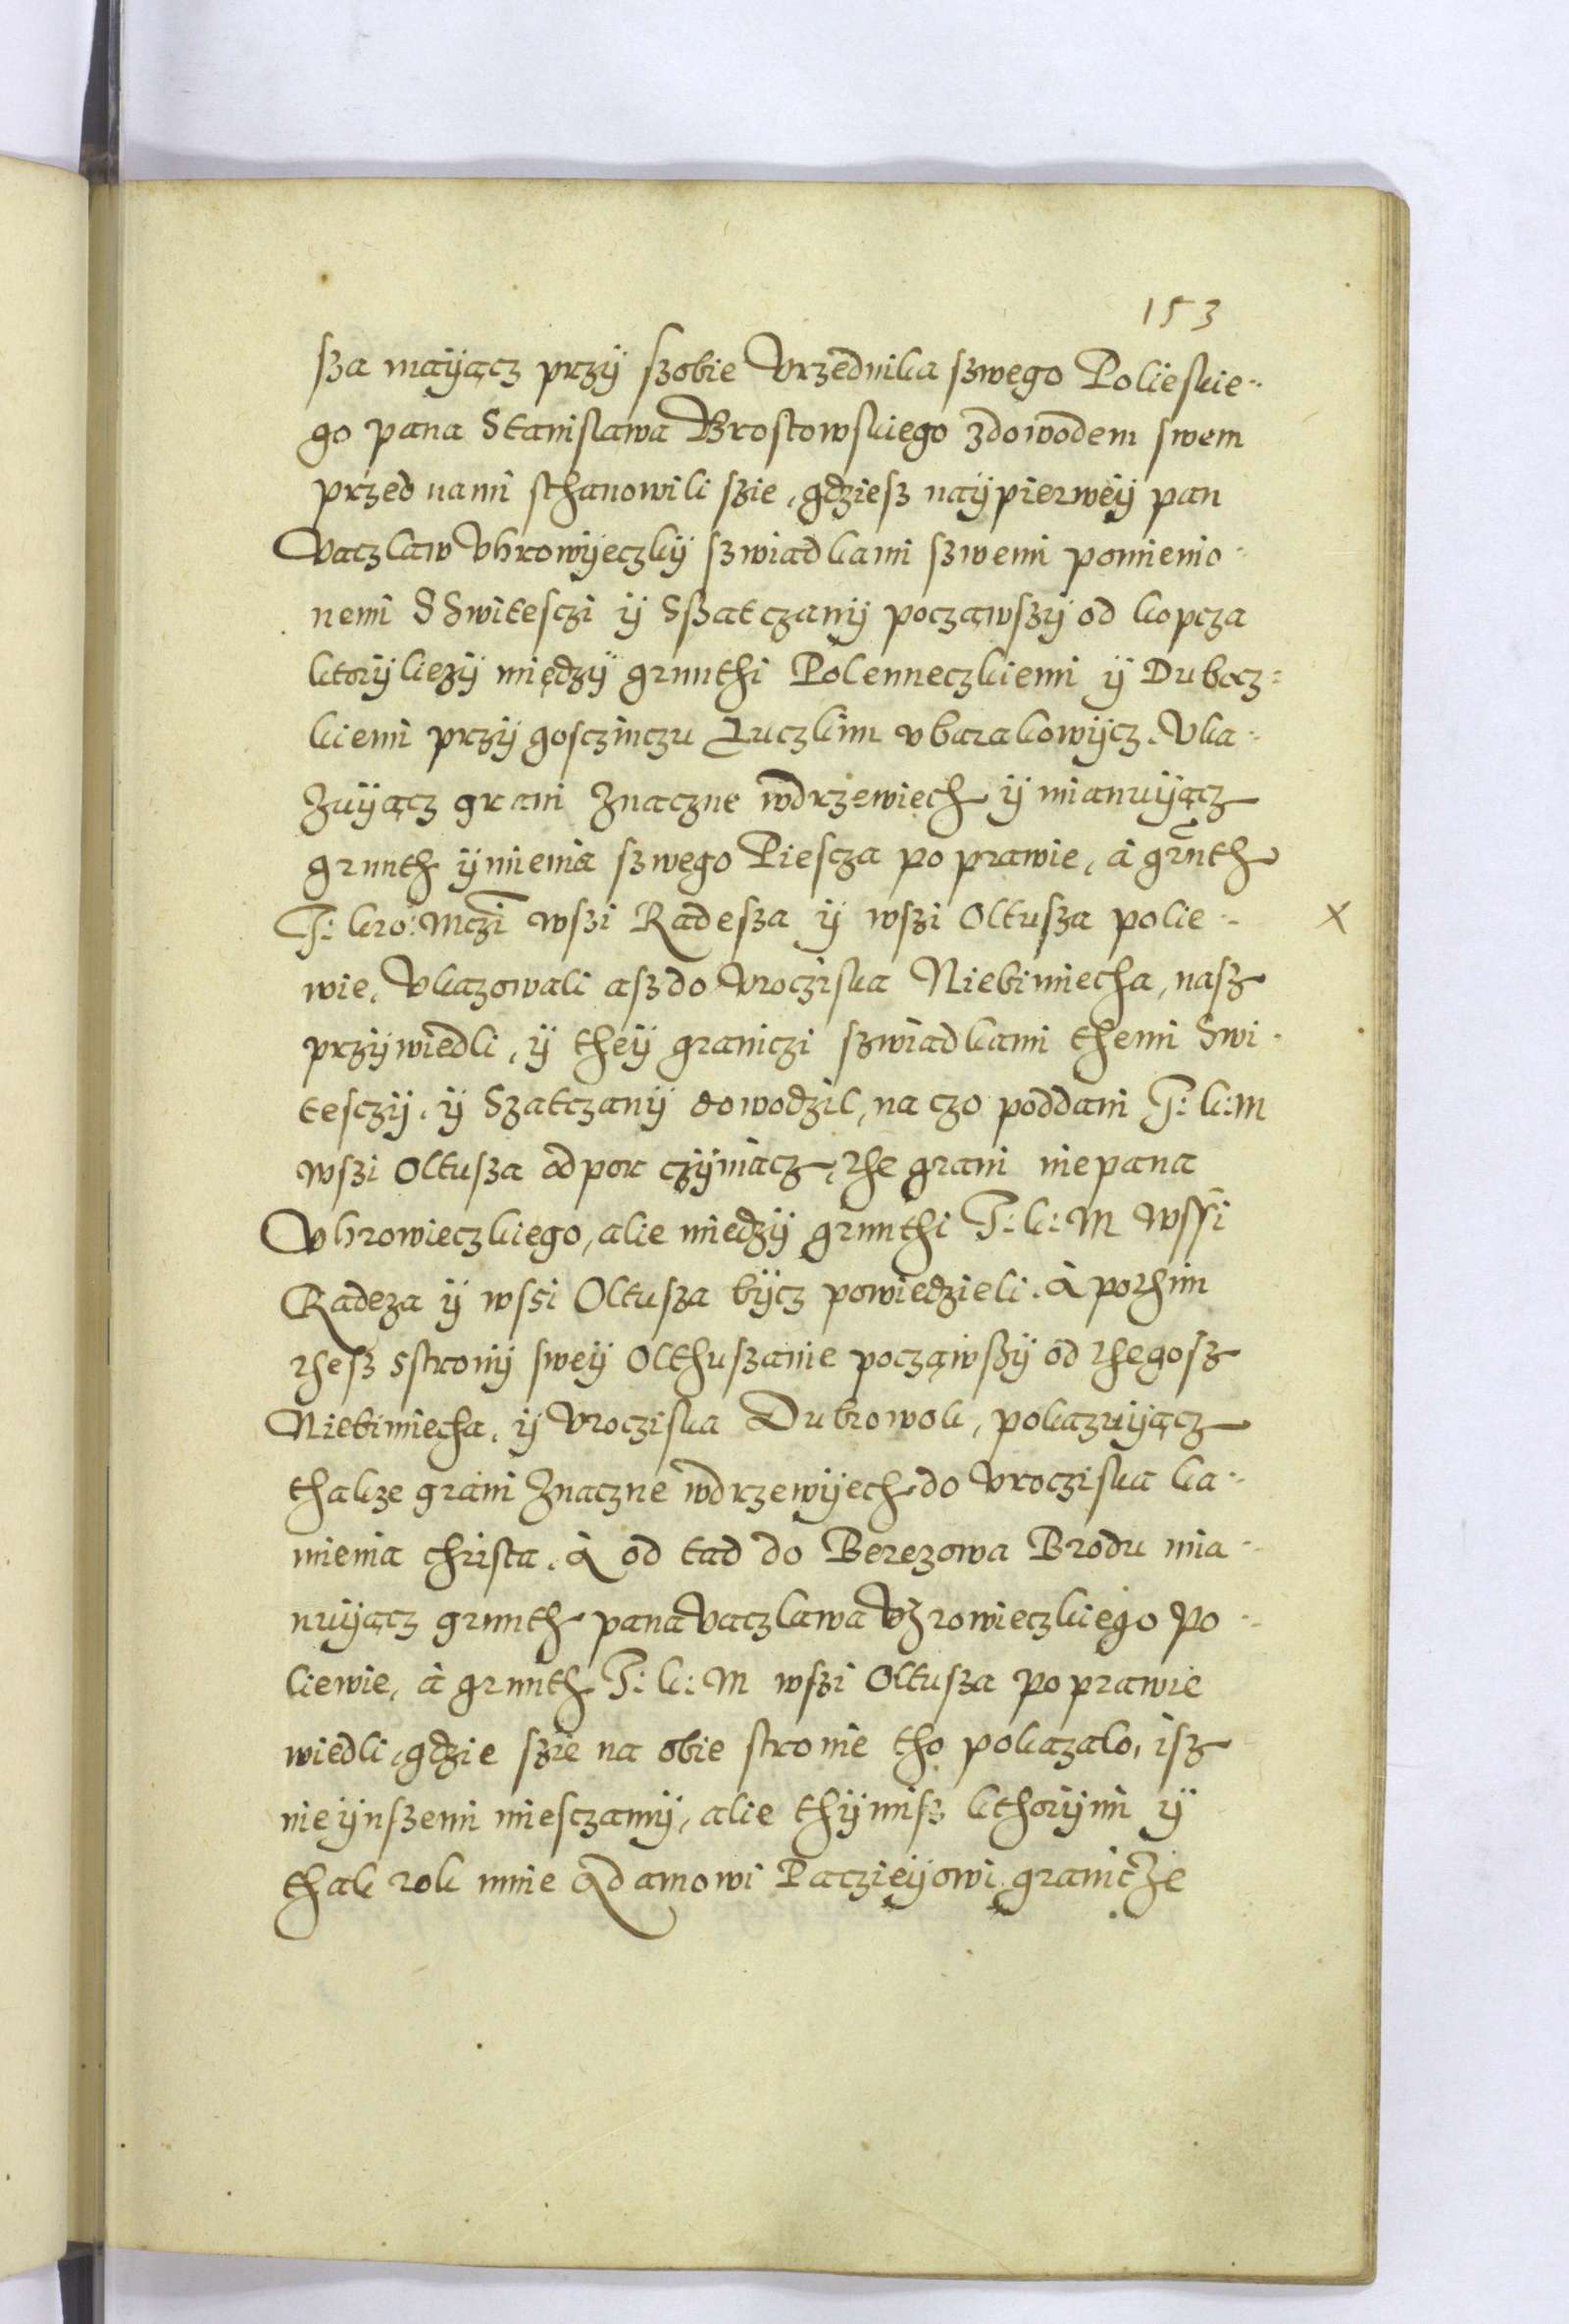 153
sza mayącz przy szobie Vrzednika szwego Polieskie-
go pana Stanisława Brostowskiego zdowodem swem
przed nami sthanowili szie, gdziesz naypierwey pan
Vaczlaw Vhrowyeczky szwiadkami szwemi pomienio-
nemi SSwitesczi y Sszatczany począwszy od kopcza
ktory liezy między grunthi Polenneczkiemi y Dubecz-
kiemi przy gosczinczu Łuczkim v barakowycz. Vka-
Zuyącz grani Znaczne wdrzewiech y mianuyącz
grunth ymienia szwego Piescza po prawie, a grunth
J: kro: Mczi wszi Radesza y wszi Oltusza polie-
X
wie, Vkazowali aszdo Vrocziska Niebimiecha, nasz
przywiedli, y they graniczi szwiadkami themi Swi-
tesczy, y Szatczany dowodzil, na czo poddani J: k: M
wszi Oltusza odpor czyniącz, zhe grani nie pana
Vhrowieczkiego, alie miedzy grunthi J: k: M wssi
Radeza y wssi Oltusza bycz powiedzieli. A pothim
thesz sstrony swey Olthuszanie począwszy od thegosz
Niebimiecha, y Vrocziska Dubrowok, pokazuyącz
thakze grani Znaczne wdrzewyech do Vrocziska ka-
mienia christa. A od tad do Berezowa Brodu mia-
nuyącz grunth pana Vaczlawa Vhrowieczkiego po-
liewie, a grunth J: k: M wszi Oltusza po prawie
wiedli, gdzie szie na obie stronie tho pokazalo, isz
nie ynszemi miesczamy, alie thymisz kthorymi y
thak rok mnie Adamowi Paczieyowi graniczże